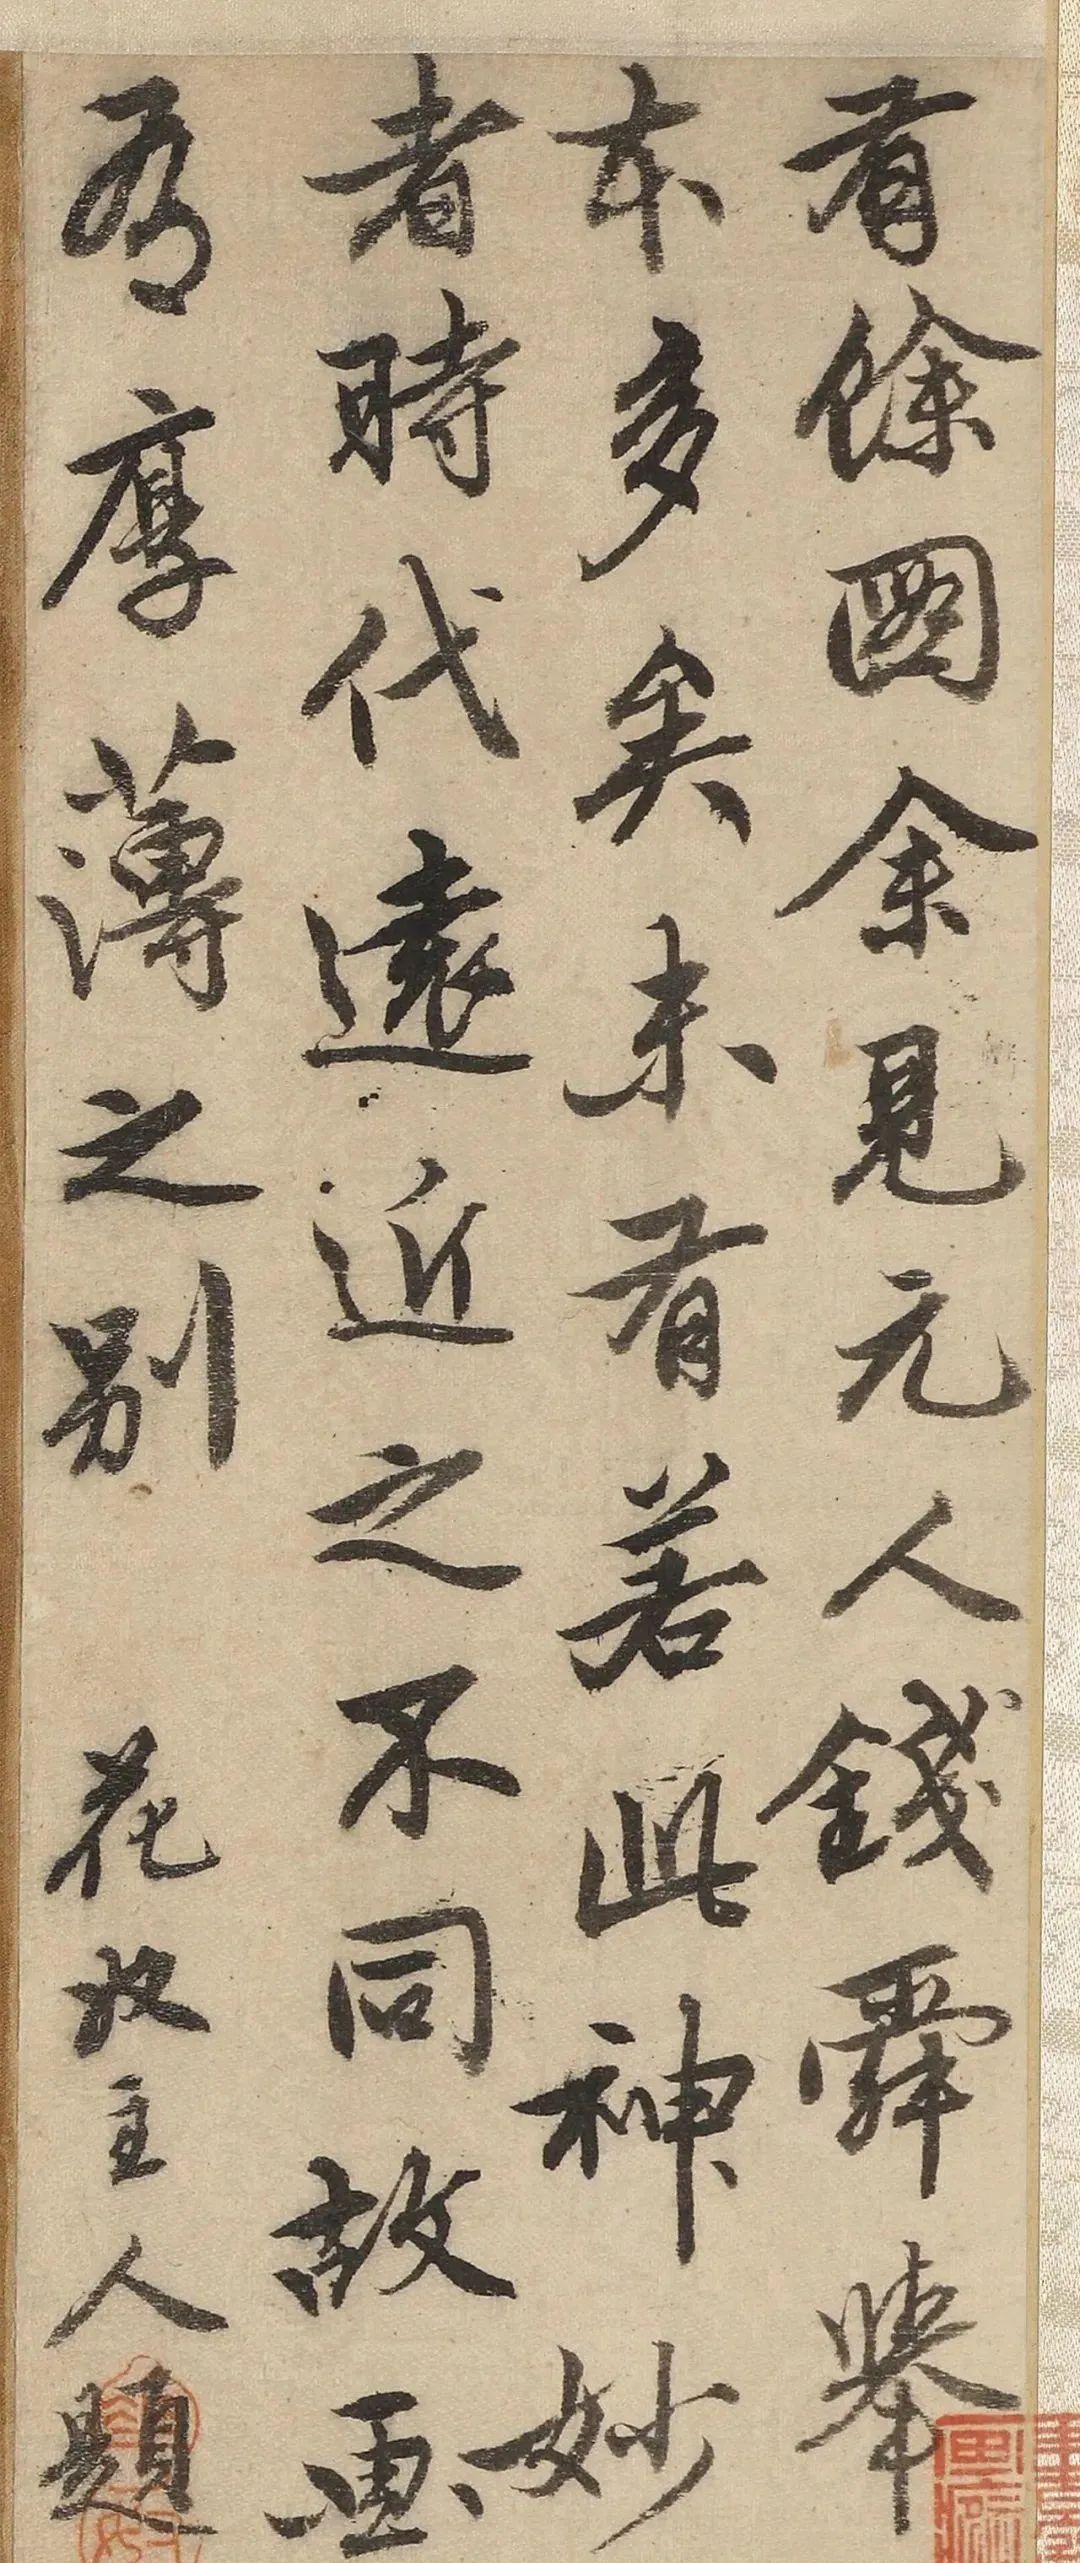 有餘國余見元人錢舜舉
本多矣未有若此神妙
者時代遠近之不同故畫
有厚薄之別
花政主人題